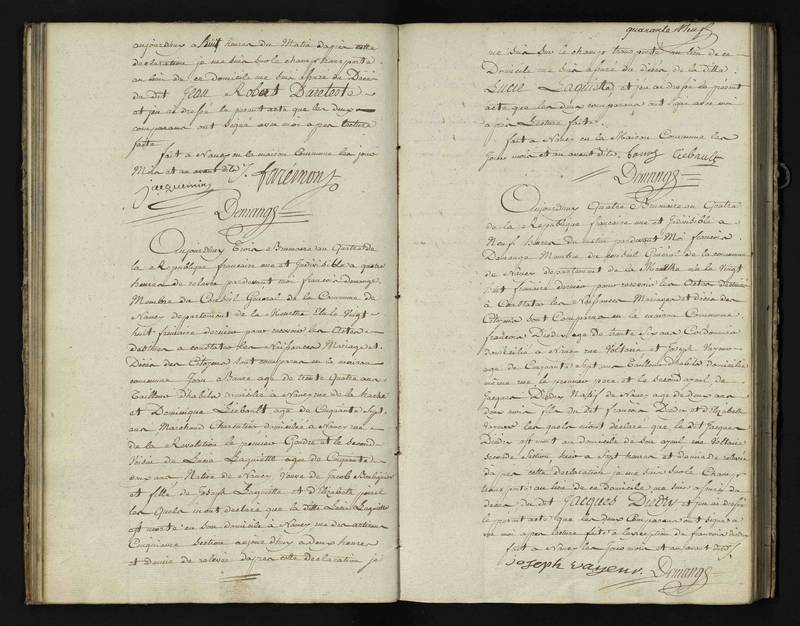 aujourdhuy a huit heures du Matin dapres cette
declaration je me suis sur le champ transporté
au lieu de ce domicile me suis assuré du Décès
du dit Jean Robert
et jen ai dressé le present acte que les deux
comparans ont signé avec moi apres lecture
faite
fait a Nancy en la maison Commune les jour
Mois et an avant dits
jacquemin faremont
Demange
Aujourdhuy Trois Brumaire an Quatre de
la République francaise une et Indivisible a quatre
heures de relevée pardevant moi francois Demange
Membre du Conseil Général de la Commune de
Nancy departement de la Meurthe Elu le Vingt
huit frimaire dernier pour recevoir les Actes
destinés a constater les Naissances Mariages et
Décès des Citoyens sont comparus en la maison
commune Jean agé de trente Quatre ans
Tailleur Dhabits domicilié a Nancy rue de la hache
et Dominique Liebault agé de Cinquante Sept
ans Marchand domicilié a Nancy rue
de la Révolution le premier Gendre et le second
Voisin de Lucie Laguiette agée de Cinquante
ans Native de Nancy Veuve de Jacob
et fille de Joseph Laguiette et d'Elizabeth
les Quels mont déclaré que la ditte Lucie Laguiette
est morte en son domicile a Nancy rue des artisans
Cinquieme Section aujourdhuy a deux heures
et demie de relevée dapres cette Declaration je
quarante Neuf
me suis sur le champ transporté au lieu de ce
Domicile me suis assuré du décès de la ditte
Lucie Laguiette et jen ai dressé le present
acte que les deux comparans ont signé avec moi
apres Lecture faite
fait a Nancy en la Maison Commune les
jours mois et an avant dits
Demange
Aujourdhuy Quatre Brumaire an Quatre
de la République francaise une et Indivisible a
Neuf heures du matin pardevant Moi francois
Demange Membre du Conseil Général de la commune
de Nancy departement de la Meurthe élu le Vingt
huit frimaire dernier pour recevoir les Actes Destinés
a Constater les Naissances Mariages et décès des
Citoyens sont Comparus en la maison Commune
francois Diedry agé de trente ans Cordonnier
domicilié a Nancy rue Voltaire et Joseph
agé de Cinquante Sept ans Tailleur Dhabits domicilié
même rue le premier pere et le second ayeul de
Jacques Diedry Natif de Nancy agé de deux ans
fils du dit francois Diedry et d'Elizabeth
les quels mont déclaré que le dit Jacques
Diedry est mort au domicile de son ayeul rue Voltaire
seconde Section hier a Sept heures et demie de relevée
dapres cette declaration je me suis sur le Champ
transporté au lieu de ce Domicile me suis assuré du
décès du dit Jacques Diedry et jen ai dressé
le present acte que les deux Comparans ont signé
avec moi apres lecture faite a l'exception de francois Diedry
fait a Nancy les jour mois et an avant dits
Joseph vayeur. Demange